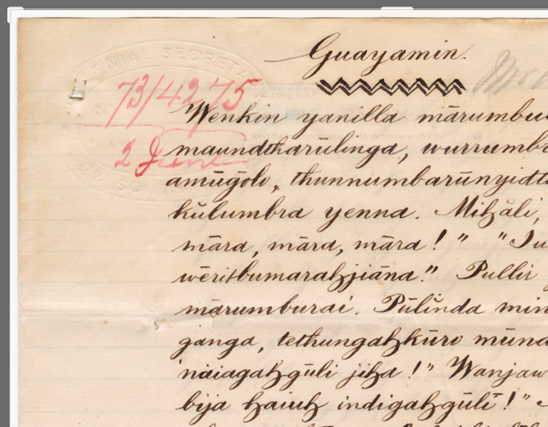 COLONIAL SECRETARY
NEW SO
Guayamin.
73/4275
2 June
Wenkin yanilla mārumbu
maundtharūlinga, wurrumb
amūgolo, thunnumbarūnyidt
kūlumbra yenna. Mitʒāli,
māra, māra, māra!" "Iu
wēritbumaraʒjiāna." Pullir
mārumburai. Pūlinda min
ganga, tethungaʒkūro mūn
naiagaʒgūli jiʒa!" Wanjaw
bija ʒaiuʒ indigaʒgūli!"